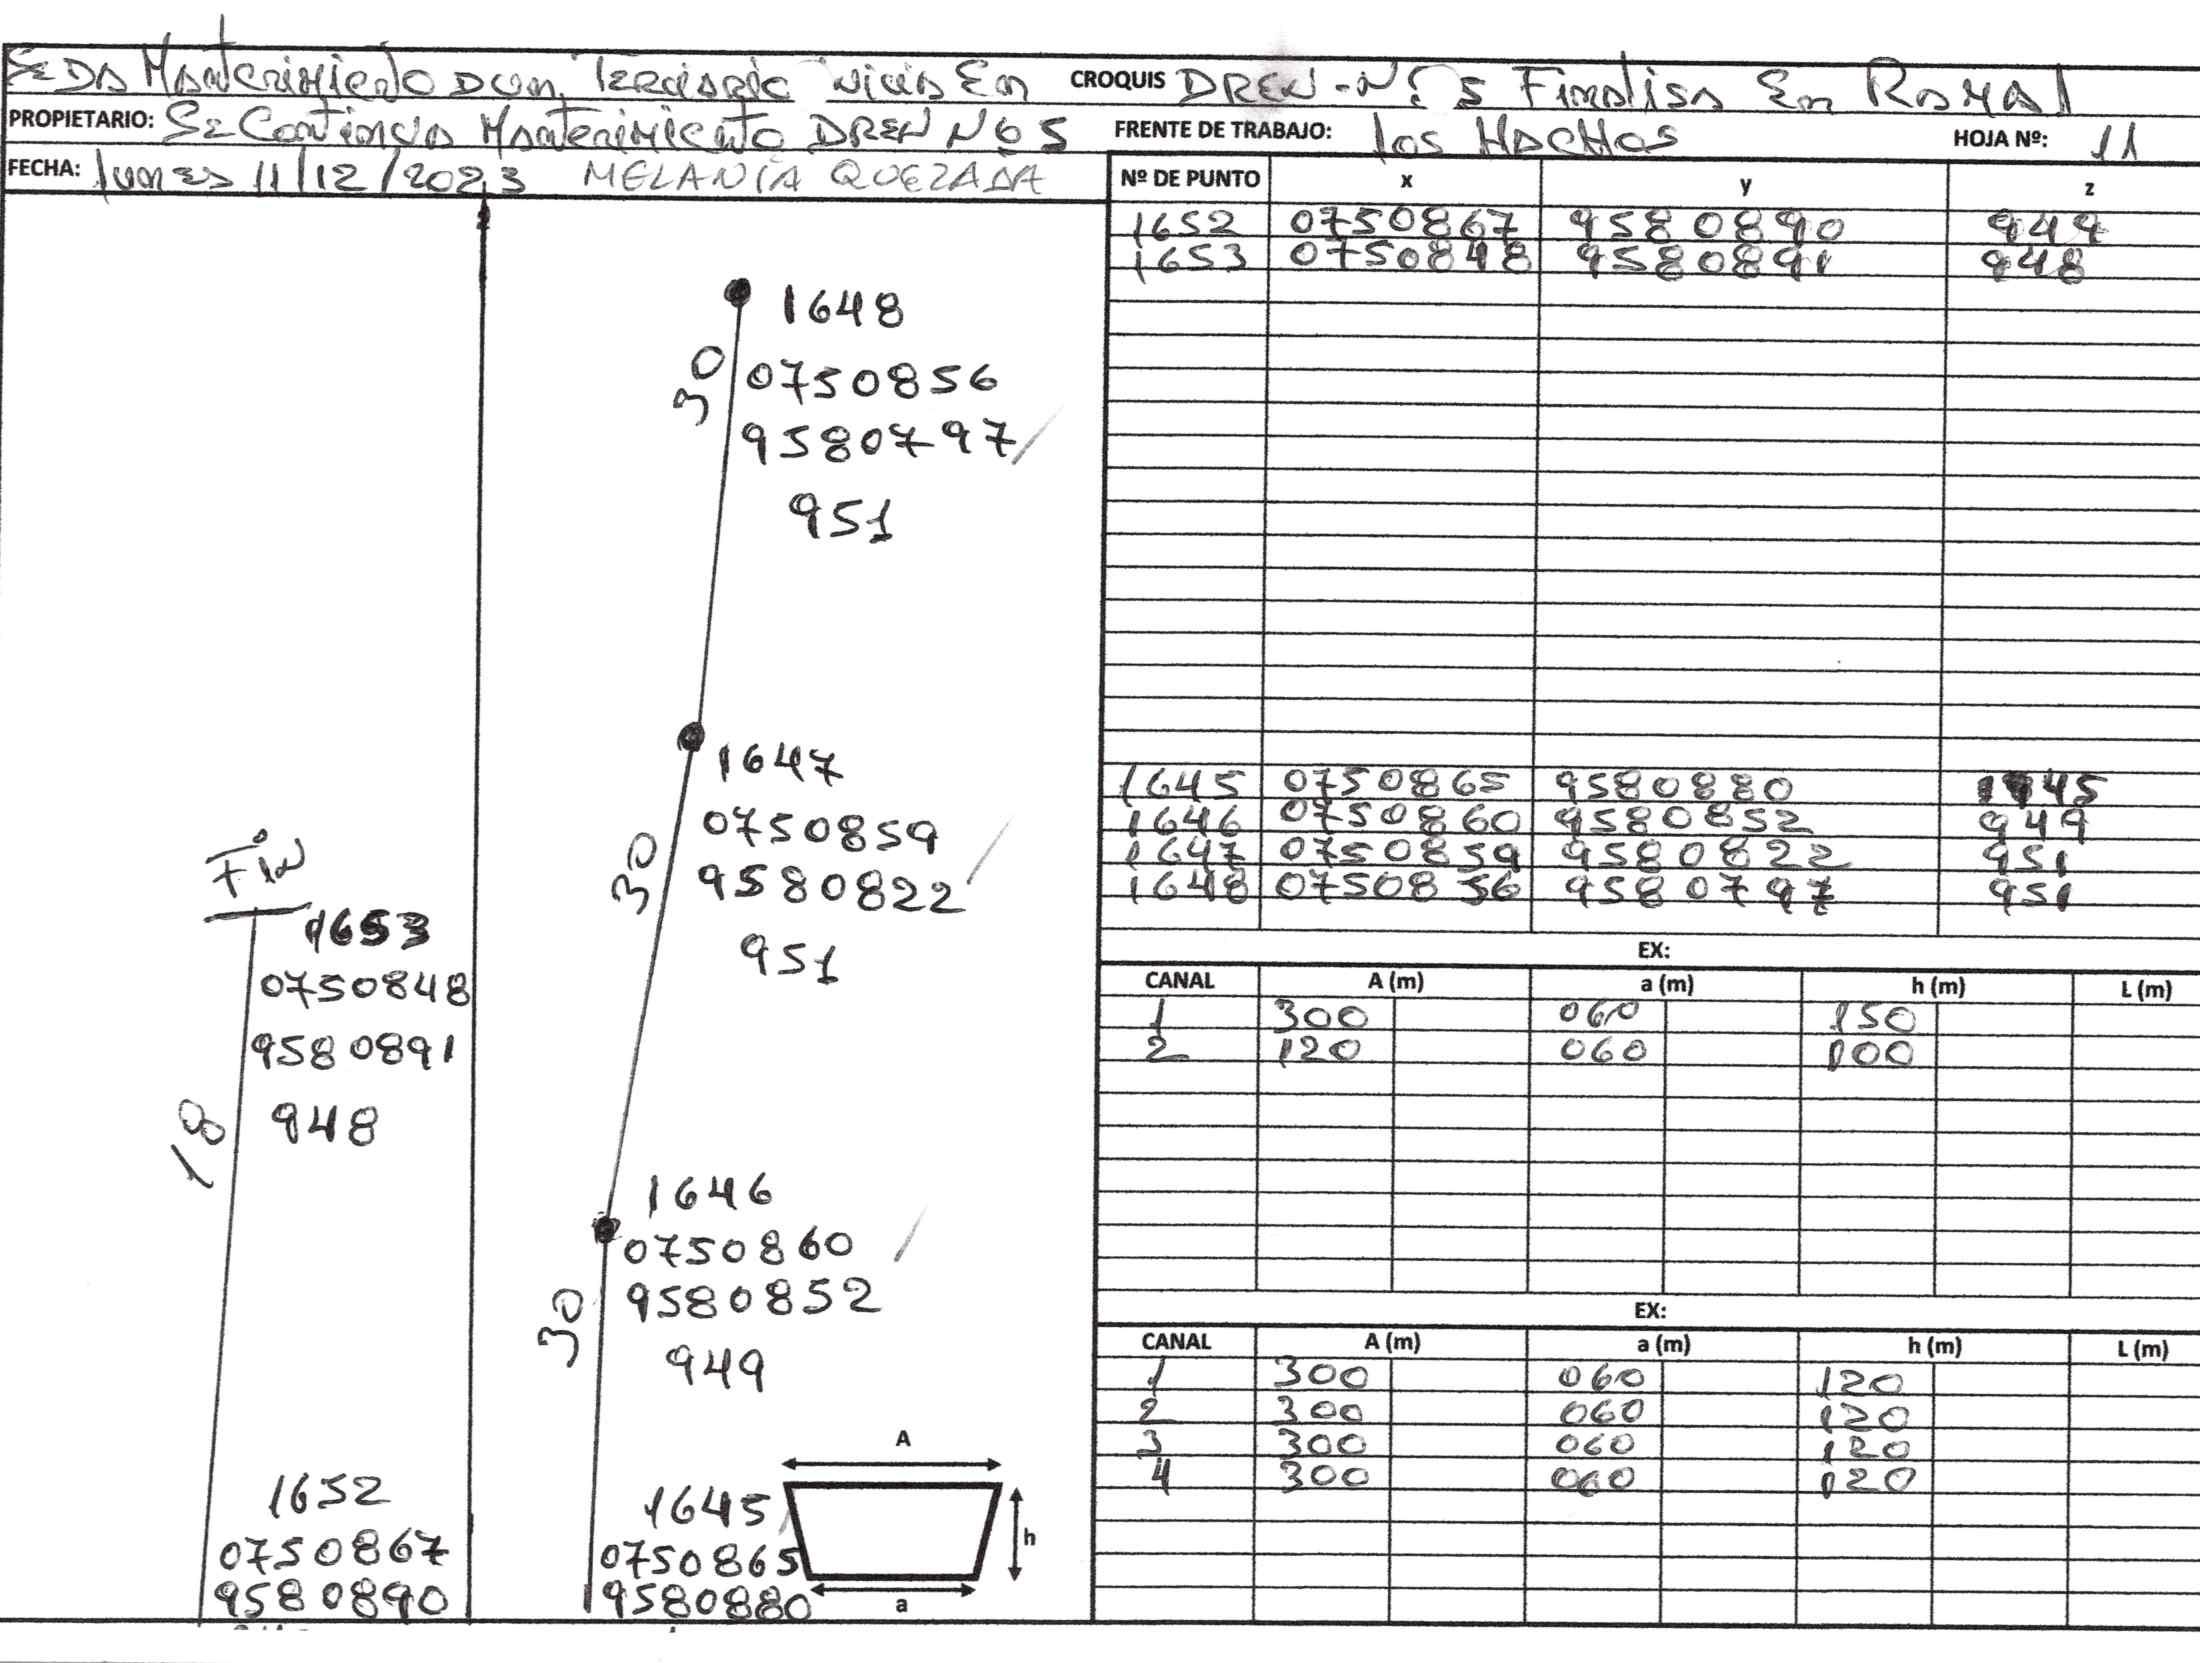 Se DA Mantenimiento DUM Terciario inicia En CROQUIS DREN-Nº 5 Finalisa En RAMAL
PROPIETARIO: Se Continua Mantenimiento DREN Nº 5 FRENTE DE TRABAJO: los HACHOS HOJA Nº: 11
FECHA: lunes 11/12/2023 MELANÍA QUEZADA
Fin
1653
0750848
9580891
948
18
1652
0750867
9580890
1648
30
0750856
9580797
951
1647
0750859
30
9580822
951
1646
0750860
9580852
30
949
1645
0750865
9580880
A
h
a
Nº DE PUNTO x y z
1652 0750867 9580890 949
1653 0750848 9580891 948
1645 0750865 9580880
1646 0750860 9580852 949
1647 0750859 9580822 951
1648 0750856 9580797 951
EX:
CANAL A (m) a (m) h (m) L (m)
1 300 060 150
2 120 060 100
EX:
CANAL A (m) a (m) h (m) L (m)
1 300 060 120
2 300 060 120
3 300 060 120
4 300 060 120